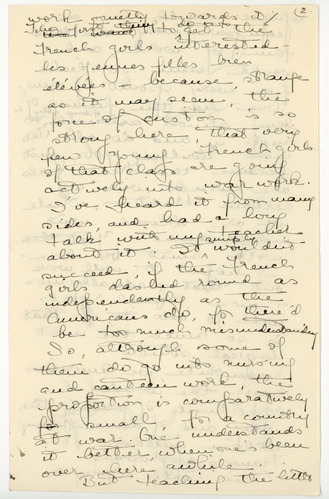 (2
work mostly towards it/
The first thing to do is to
get the
French girls interested –
les jeunes filles bien
élévées – because, strange
as it may seem, the
force of custom is so
strong here that very
few young French girls
of that class are going
actively into war work.
I've heard it from many
sides, and had a long
talk with my teacher
about it. It simply wouldn't
succeed, if the French
girls dashed round as
independently as the
Americans do, for there'd
be too much misunderstanding
So, although some of
them do go into nursing
and canteen work, the
proportion is comparatively
small for a country
at war. One understands
it better, when one's been
over here awhile.
But teaching the little